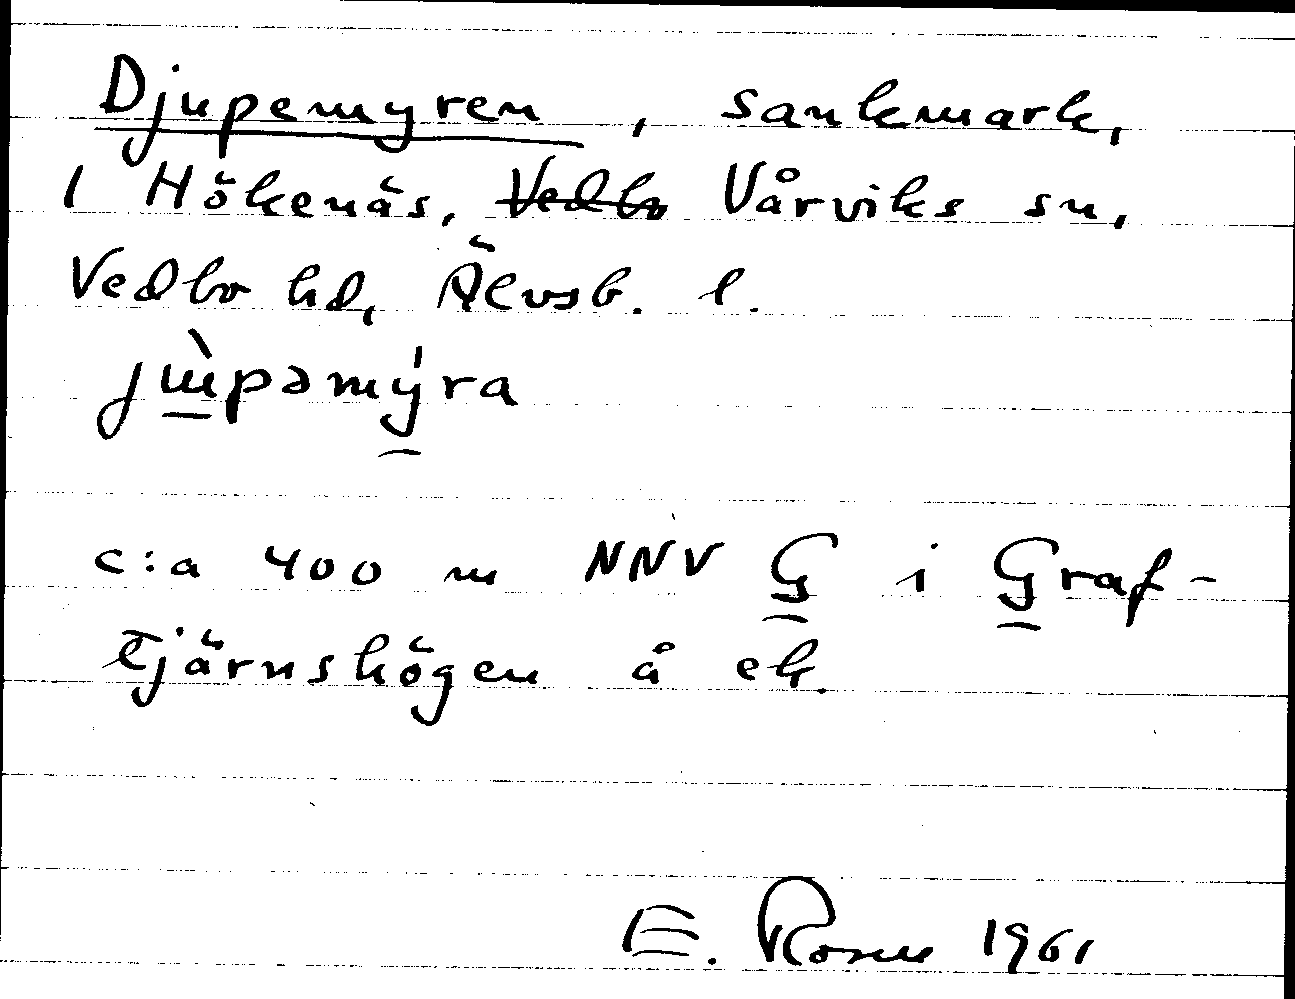 Djupemyren, sankmark,
1 Hökenäs, Vedbo Vårviks sn,
Vedbo hd, Älvsb. l.
jɯ̀pəmýra
c:a 400 m NNV G i Graf-
tjärnshögen å ek.
E. 1961